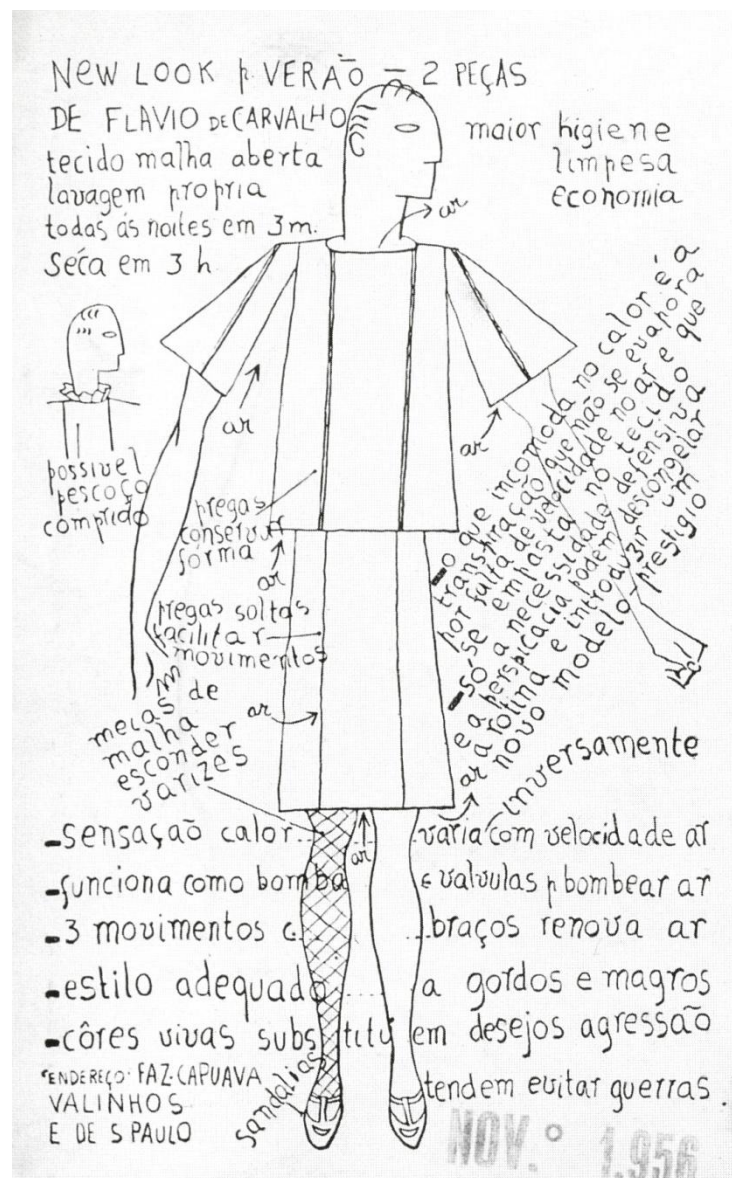 NEW LOOK p. VERÃO - 2 PEÇAS
DE FLAVIO DE CARVALHO
tecido malha aberta
lavagem propria
todas ás noites em 3 m.
Séca em 3 h
maior higiene
limpesa
economia
ar
possivel
pescoço
comprido
ar
ar
pregas
conservar
fórma
ar
pregas soltas
facilitar
movimentos
ar
meias de
malha
esconder
varizes
m
- o que incomoda no calor é a
transpiração que não se evapóra
por falta de velocidade no ar e que
se empasta no tecido
- só a necessidade defensiva
e a perspicacia podem descongelar
a rotina e introduzir um
novo modelo-prestigio
ar
ar
- sensação calor... varia inversamente com velocidade ar
- funciona como bomba e valvulas p bombear ar
- 3 movimentos c... ...braços renova ar
- estilo adequado .... a gordos e magros
- côres vivas substituem desejos agressão
tendem evitar guerras.
ENDEREÇO· FAZ·CAPUAVA
VALINHOS
E DE S PAULO
sandalias
NOV.º 1.956